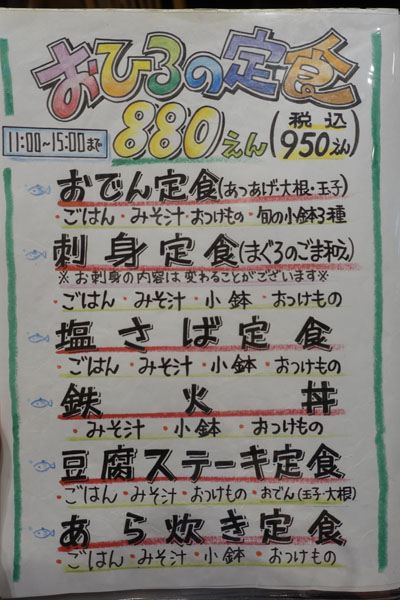 おひるの定食
11:00~15:00まで
880えん(税込950えん)
おでん定食(あつあげ・大根・玉子)
ごはん・みそ汁・おつけもの・旬の小鉢3種
刺身定食(まぐろのごま和え)
※お刺身の内容は変わることがございます※
ごはん・みそ汁・小鉢・おつけもの
塩さば定食
ごはん・みそ汁・小鉢・おつけもの
鉄火丼
・みそ汁・小鉢・おつけもの
豆腐ステーキ定食
ごはん・みそ汁・おつけもの・おでん(玉子・大根)
あら炊き定食
ごはん・みそ汁・小鉢・おつけもの